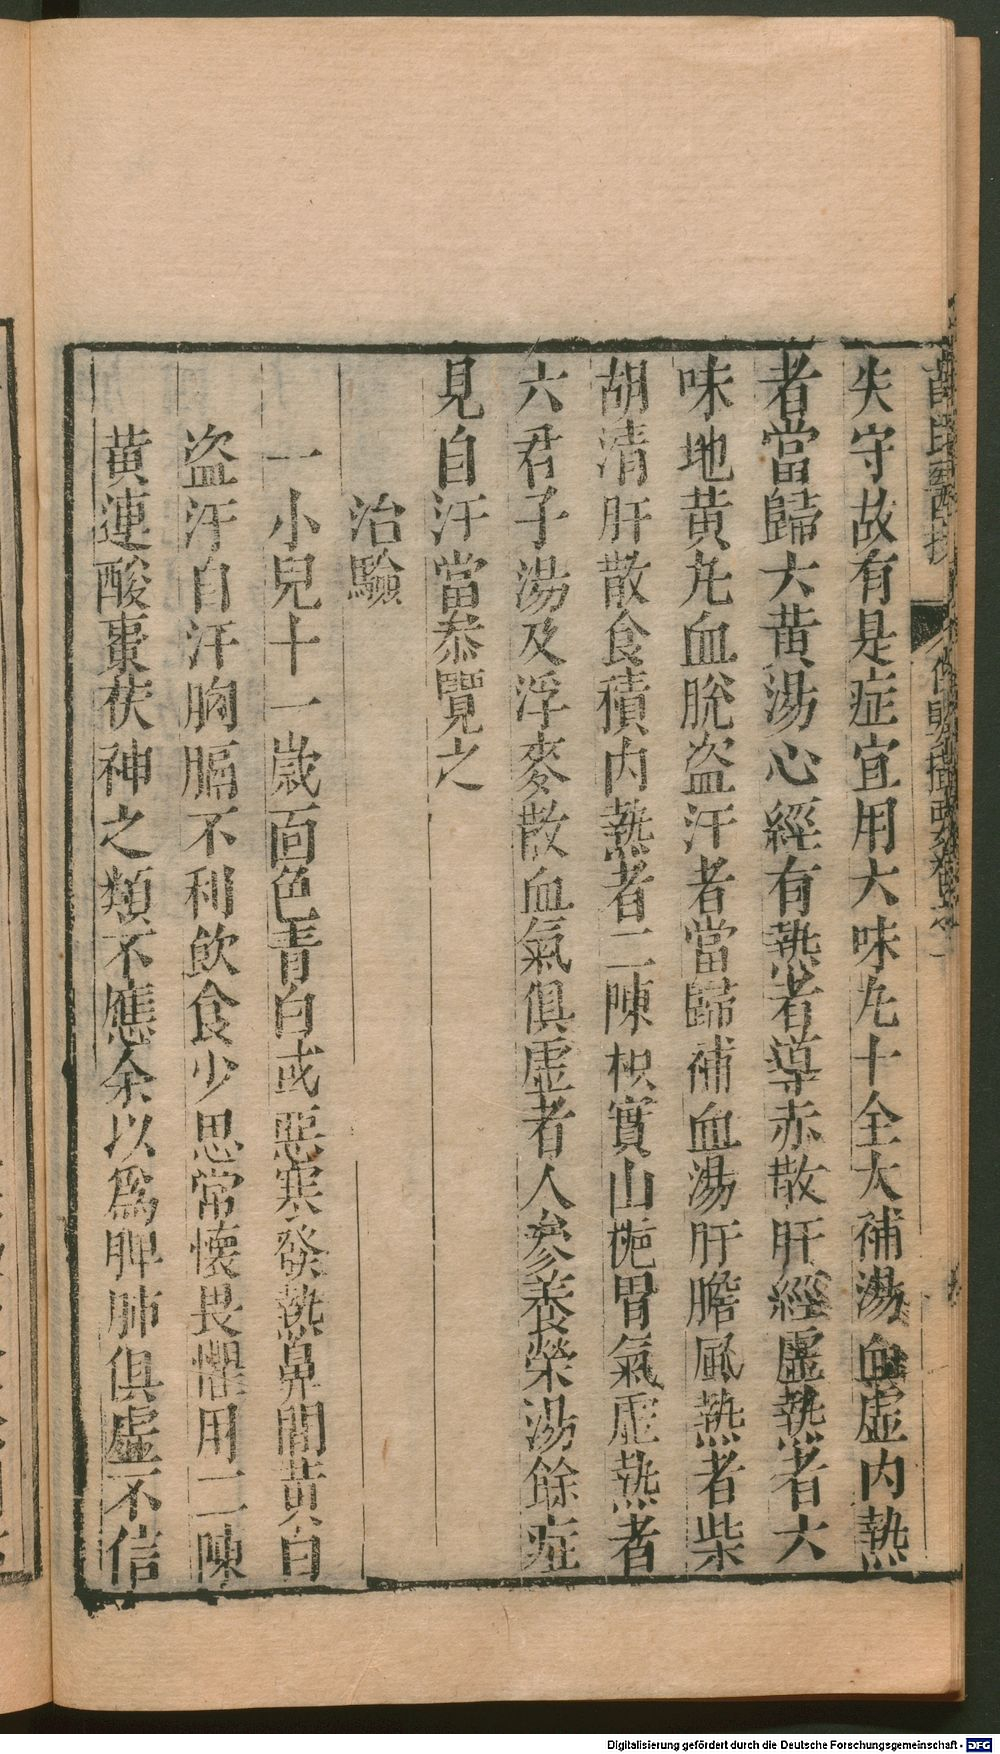 失守故有是症宜用大味九十全大補湯血虛内熱
者當歸大黄湯心經有熱者導赤散肝經虛熱者六
味地黄九血脫盗汗者當歸補血湯肝膽風熱者柴
胡清肝散食積内熱者二陳枳實山梔胃氣虛熱者
六君子湯及浮麥散血氣俱虛者人參養榮湯餘症
見自汗當叅覽之
治驗
一小兒十一歲面色青白或惡寒發熱鼻間黄白
盗汗自汗胸膈不利飲食少思常懷畏懼用二陳
黄連酸棗茯神之類不應余以爲脾肺俱虛不信
Digitalisierung gefördert durch die Deutsche Forschungsgemeinschaft - DFG